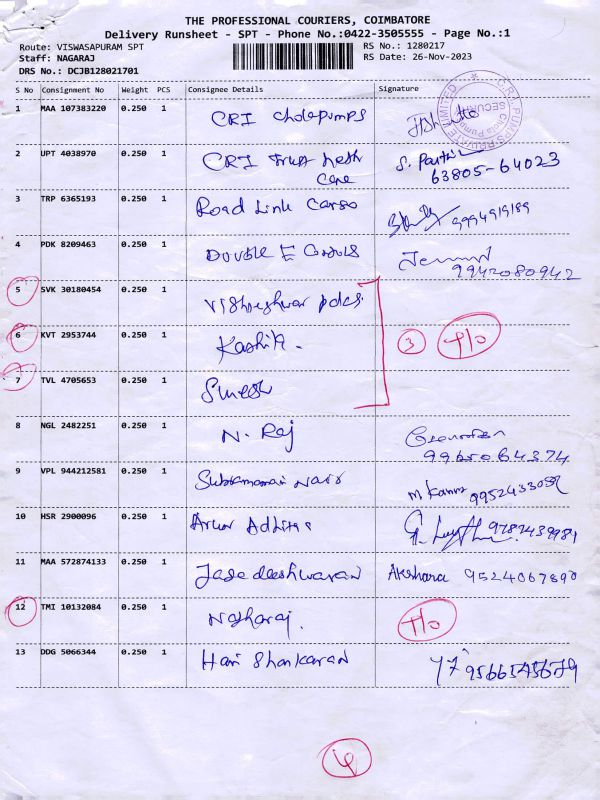 THE PROFESSIONAL COURIERS, COIMBATORE
Delivery Runsheet - SPT - Phone No.:0422-3505555 - Page No.:1
Route: VISWASAPURAM SPT RS No.: 1280217
Staff: NAGARAJ RS Date: 26-Nov-2023
DRS No.: DCJB128021701
S No Consignment No Weight PCS Consignee Details Signature
1 MAA 107383220 0.250 1 CRI Cholapumps
2 UPT 4038970 0.250 1 CRI Trust
Care 63805-64023
3 TRP 6365193 0.250 1 Road Link Cargo 9994919189
4 PDK 8209463 0.250 1 DOUBLE E
9942080942
5 SVK 30180454 0.250 1
6 KVT 2953744 0.250 1 Kashik. 3
7 TVL 4705653 0.250 1 Suresh
8 NGL 2482251 0.250 1 N. Raj
9965064374
9 VPL 944212581 0.250 1 Subramanian Nair
10 HSR 2900096 0.250 1 Arun 9787439981
11 MAA 572874133 0.250 1 Jagadeeshwaran Akshara 9524067890
12 TMI 10132084 0.250 1 Natharaj.
13 DDG 5066344 0.250 1 Hari Shankaran 9566545679